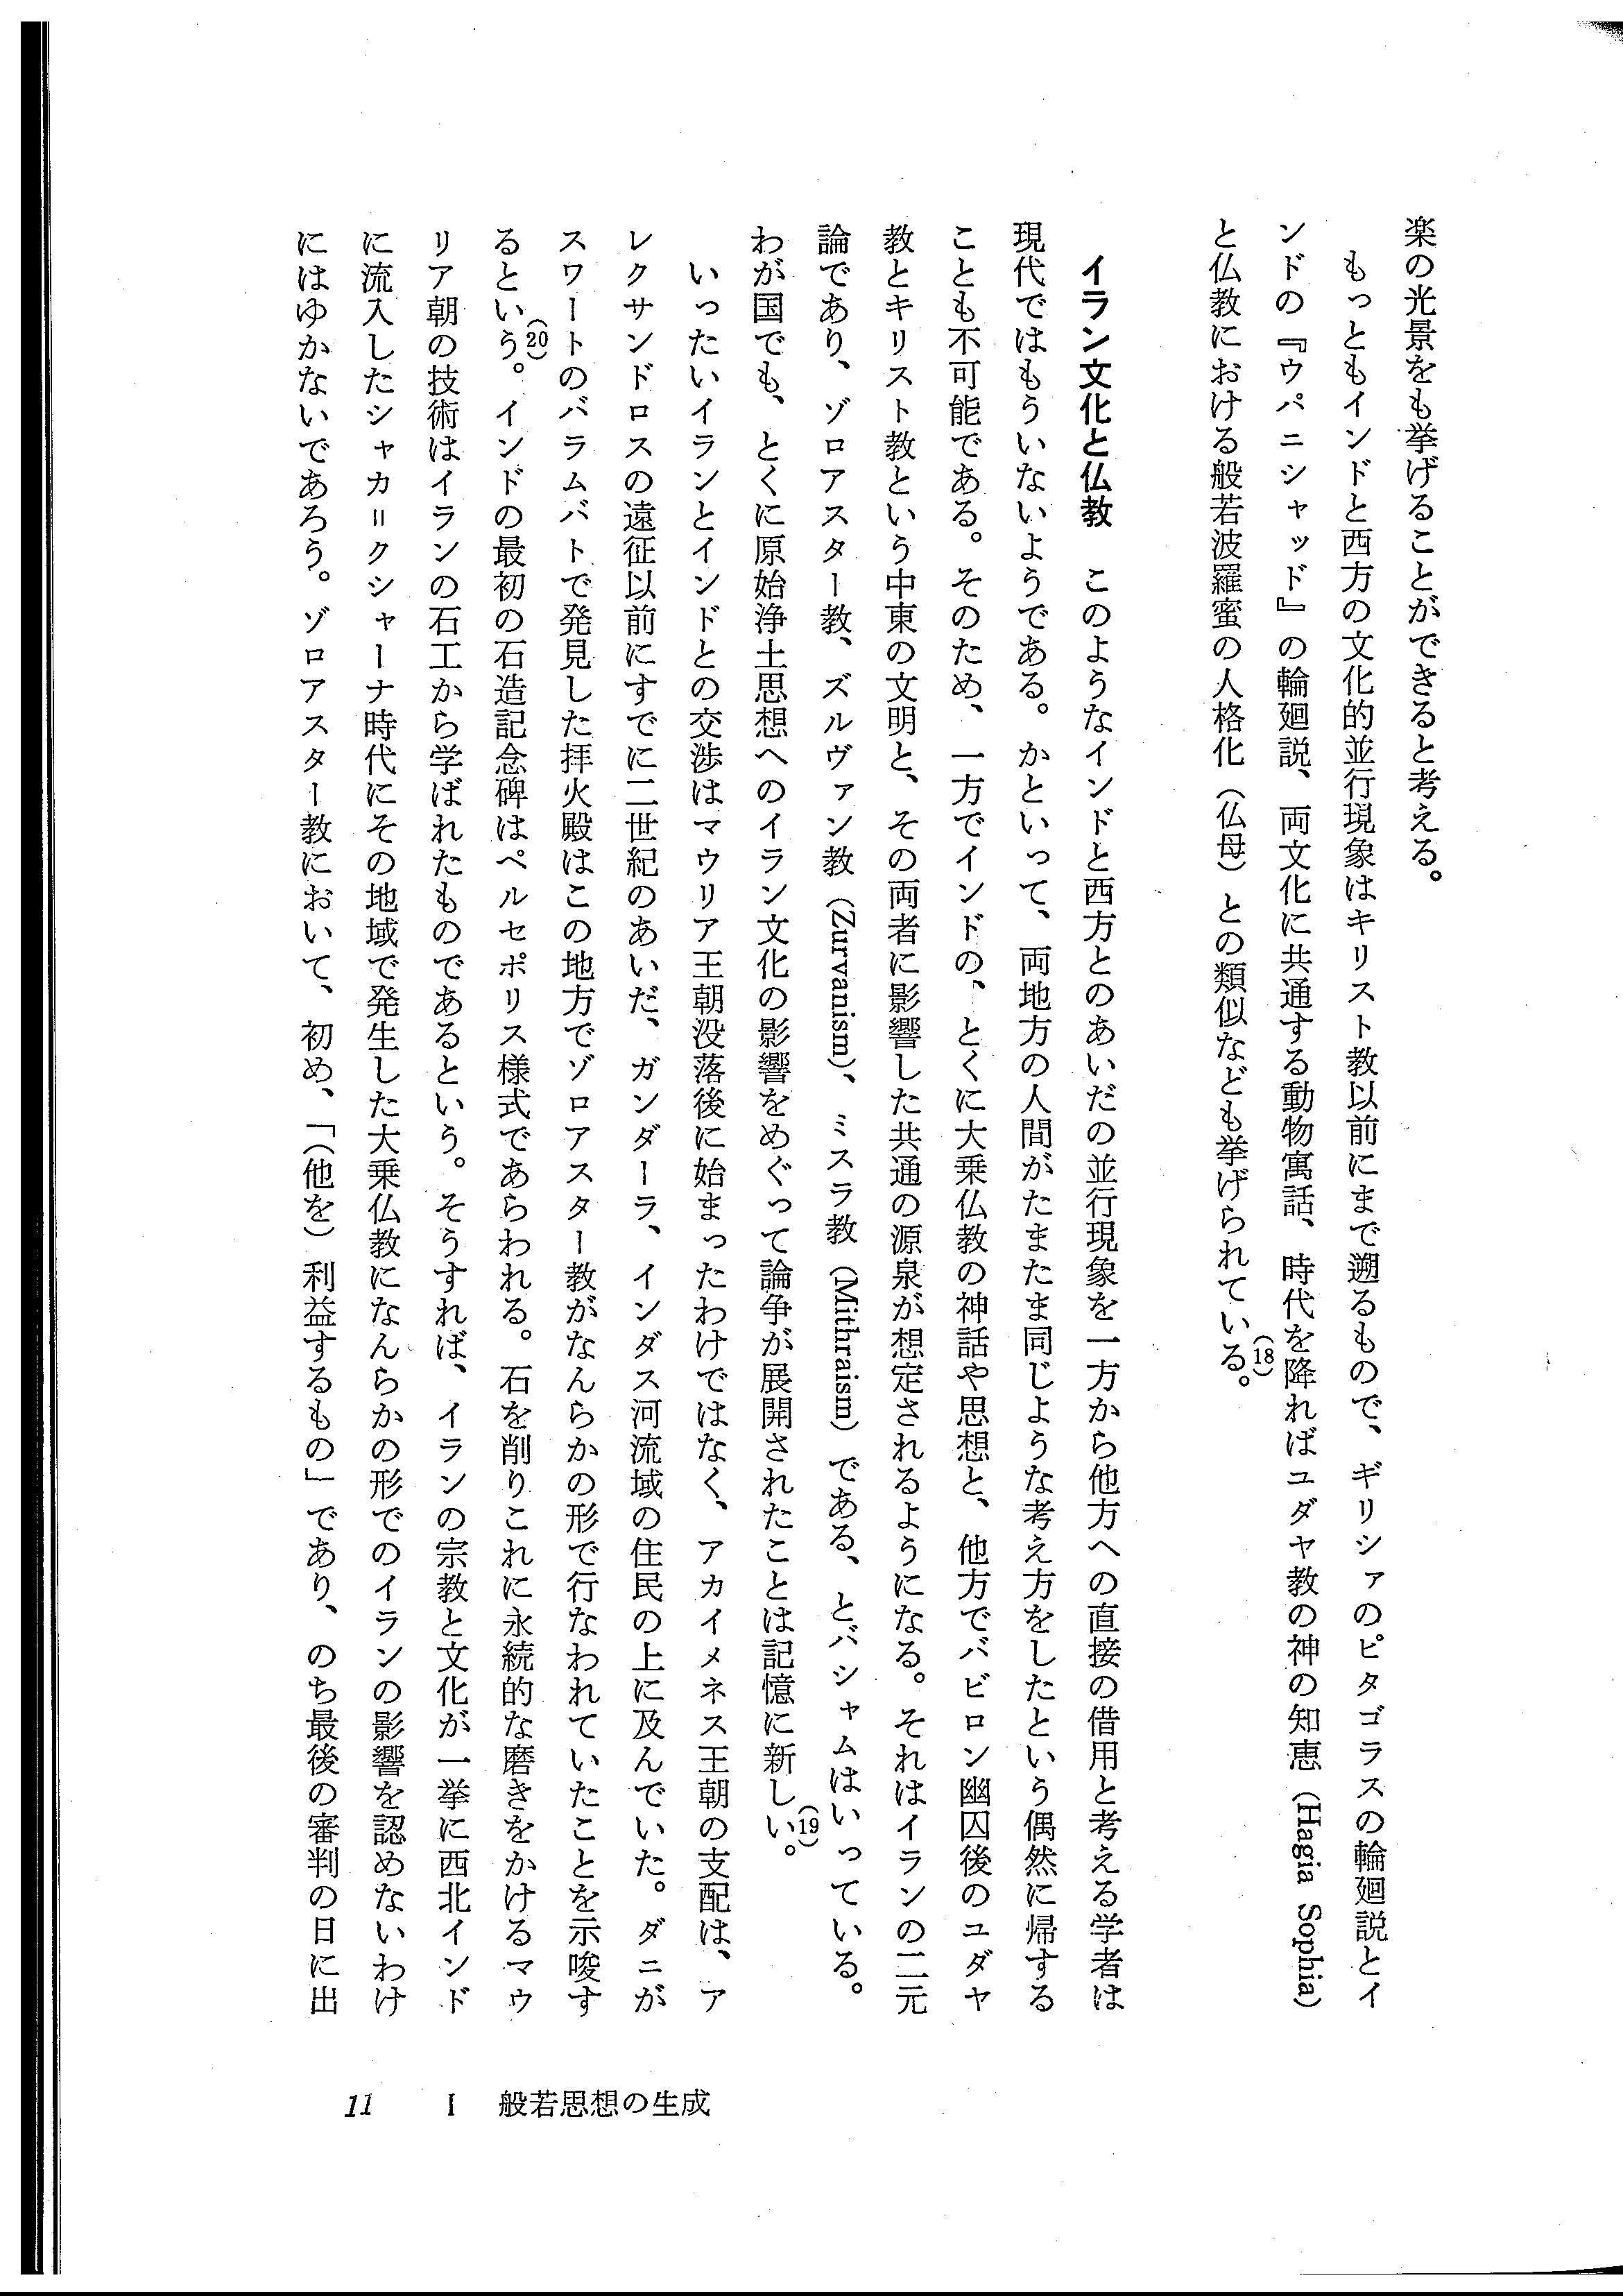 楽の光景をも挙げることができると考える。
もっともインドと西方の文化的並行現象はキリスト教以前にまで遡るもので、ギリシァのピタゴラスの輪廻説とイ
ンドの『ウパニシャッド』の輪廻説、両文化に共通する動物寓話、時代を降ればユダヤ教の神の知恵（Hagia Sophia）
と仏教における般若波羅蜜の人格化（仏母）との類似なども挙げられている。(18)
イラン文化と仏教　このようなインドと西方とのあいだの並行現象を一方から他方への直接の借用と考える学者は
現代ではもういないようである。かといって、両地方の人間がたまたま同じような考え方をしたという偶然に帰する
ことも不可能である。そのため、一方でインドの、とくに大乗仏教の神話や思想と、他方でバビロン幽囚後のユダヤ
教とキリスト教という中東の文明と、その両者に影響した共通の源泉が想定されるようになる。それはイランの二元
論であり、ゾロアスター教、ズルヴァン教（Zurvanism）、ミスラ教（Mithraism）である、とバシャムはいっている。
わが国でも、とくに原始浄土思想へのイラン文化の影響をめぐって論争が展開されたことは記憶に新しい。(19)
いったいイランとインドとの交渉はマウリア王朝没落後に始まったわけではなく、アカイメネス王朝の支配は、ア
レクサンドロスの遠征以前にすでに二世紀のあいだ、ガンダーラ、インダス河流域の住民の上に及んでいた。ダニが
スワートのバラムバトで発見した拝火殿はこの地方でゾロアスター教がなんらかの形で行なわれていたことを示唆す
るという。(20)インドの最初の石造記念碑はペルセポリス様式であらわれる。石を削りこれに永続的な磨きをかけるマウ
リア朝の技術はイランの石工から学ばれたものであるという。そうすれば、イランの宗教と文化が一挙に西北インド
に流入したシャカ＝クシャーナ時代にその地域で発生した大乗仏教になんらかの形でのイランの影響を認めないわけ
にはゆかないであろう。ゾロアスター教において、初め、「（他を）利益するもの」であり、のち最後の審判の日に出
11　I　般若思想の生成